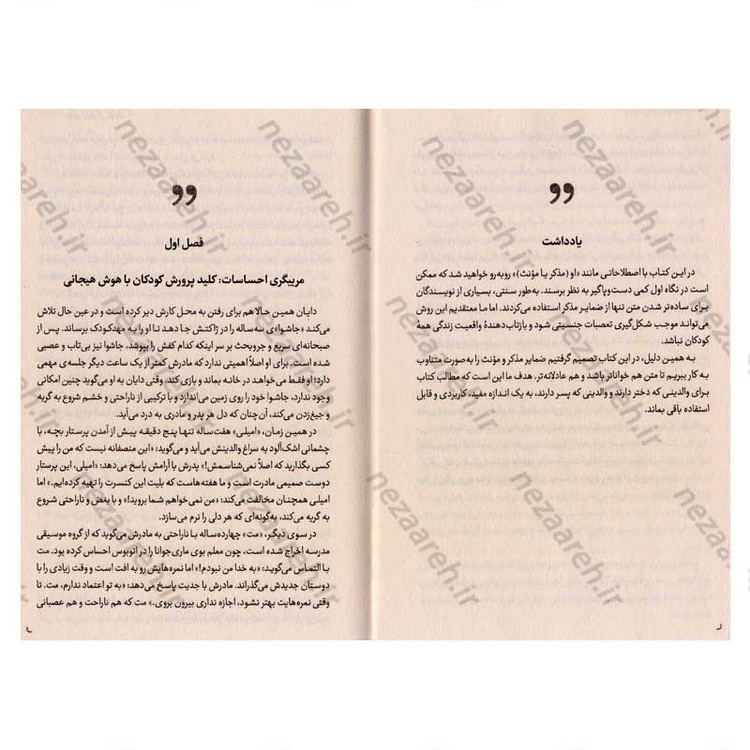 یادداشت
در این کتاب با اصطلاحاتی مانند «او (مذکر یا مؤنث)» روبه‌رو خواهید شد که ممکن
است در نگاه اول کمی دست‌وپاگیر به نظر برسند. به‌طور سنتی، بسیاری از نویسندگان
برای ساده‌تر شدن متن تنها از ضمایر مذکر استفاده می‌کردند. اما ما معتقدیم این روش
می‌تواند موجب شکل‌گیری تعصبات جنسیتی شود و بازتاب‌دهندهٔ واقعیت زندگی همهٔ
کودکان نباشد.
به همین دلیل، در این کتاب تصمیم گرفتیم ضمایر مذکر و مؤنث را به صورت متناوب
به کار ببریم تا متن هم خواناتر باشد و هم عادلانه‌تر. هدف ما این است که مطالب کتاب
برای والدینی که دختر دارند و والدینی که پسر دارند، به یک اندازه مفید، کاربردی و قابل
استفاده باقی بماند.
فصل اول
مربیگری احساسات: کلید پرورش کودکان با هوش هیجانی
دایان همین حالا هم برای رفتن به محل کارش دیر کرده است و در عین حال تلاش
می‌کند «جاشوا»ی سه‌ساله را در ژاکتش جا دهد تا او را به مهدکودک برساند. پس از
صبحانه‌ای سریع و جروبحث بر سر اینکه کدام کفش را بپوشد، جاشوا نیز بی‌تاب و عصبی
شده است. برای او اصلاً اهمیتی ندارد که مادرش کمتر از یک ساعت دیگر جلسه‌ی مهمی
دارد؛ او فقط می‌خواهد در خانه بماند و بازی کند. وقتی دایان به او می‌گوید چنین امکانی
وجود ندارد، جاشوا خود را روی زمین می‌اندازد و با ترکیبی از ناراحتی و خشم شروع به گریه
و جیغ‌زدن می‌کند، آن‌چنان که دل هر پدر و مادری به درد می‌آید.
در همین زمان، «امیلی» هفت‌ساله تنها پنج دقیقه پیش از آمدن پرستار بچه، با
چشمانی اشک‌آلود به سراغ والدینش می‌آید و می‌گوید: «این منصفانه نیست که من را پیش
کسی بگذارید که اصلاً نمی‌شناسمش!» پدرش با آرامش پاسخ می‌دهد: «امیلی، این پرستار
دوست صمیمی مادرت است و ما هفته‌هاست که بلیت این کنسرت را تهیه کرده‌ایم.» اما
امیلی همچنان مخالفت می‌کند: «من نمی‌خواهم شما بروید!» و با بغض و ناراحتی شروع
به گریه می‌کند، به‌گونه‌ای که هر دلی را نرم می‌سازد.
در سوی دیگر، «مت» چهارده‌ساله با ناراحتی به مادرش می‌گوید که از گروه موسیقی
مدرسه اخراج شده است، چون معلم بوی ماری‌جوانا را در اتوبوس احساس کرده بود. مت
با التماس می‌گوید: «به خدا من نبودم!» اما نمره‌هایش رو به افت است و وقت زیادی را با
دوستان جدیدش می‌گذراند. مادرش با جدیت پاسخ می‌دهد: «به تو اعتماد ندارم، مت. تا
وقتی نمره‌هایت بهتر نشود، اجازه نداری بیرون بروی.» مت که هم ناراحت و هم عصبانی
nezaareh.ir